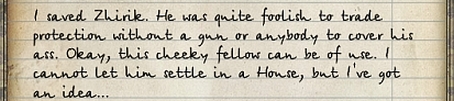 I saved Zhirik. He was quite foolish to trade
protection without a gun or anybody to cover his
ass. Okay, this cheeky fellow can be of use. I
cannot let him settle in a House, but I've got
an idea...